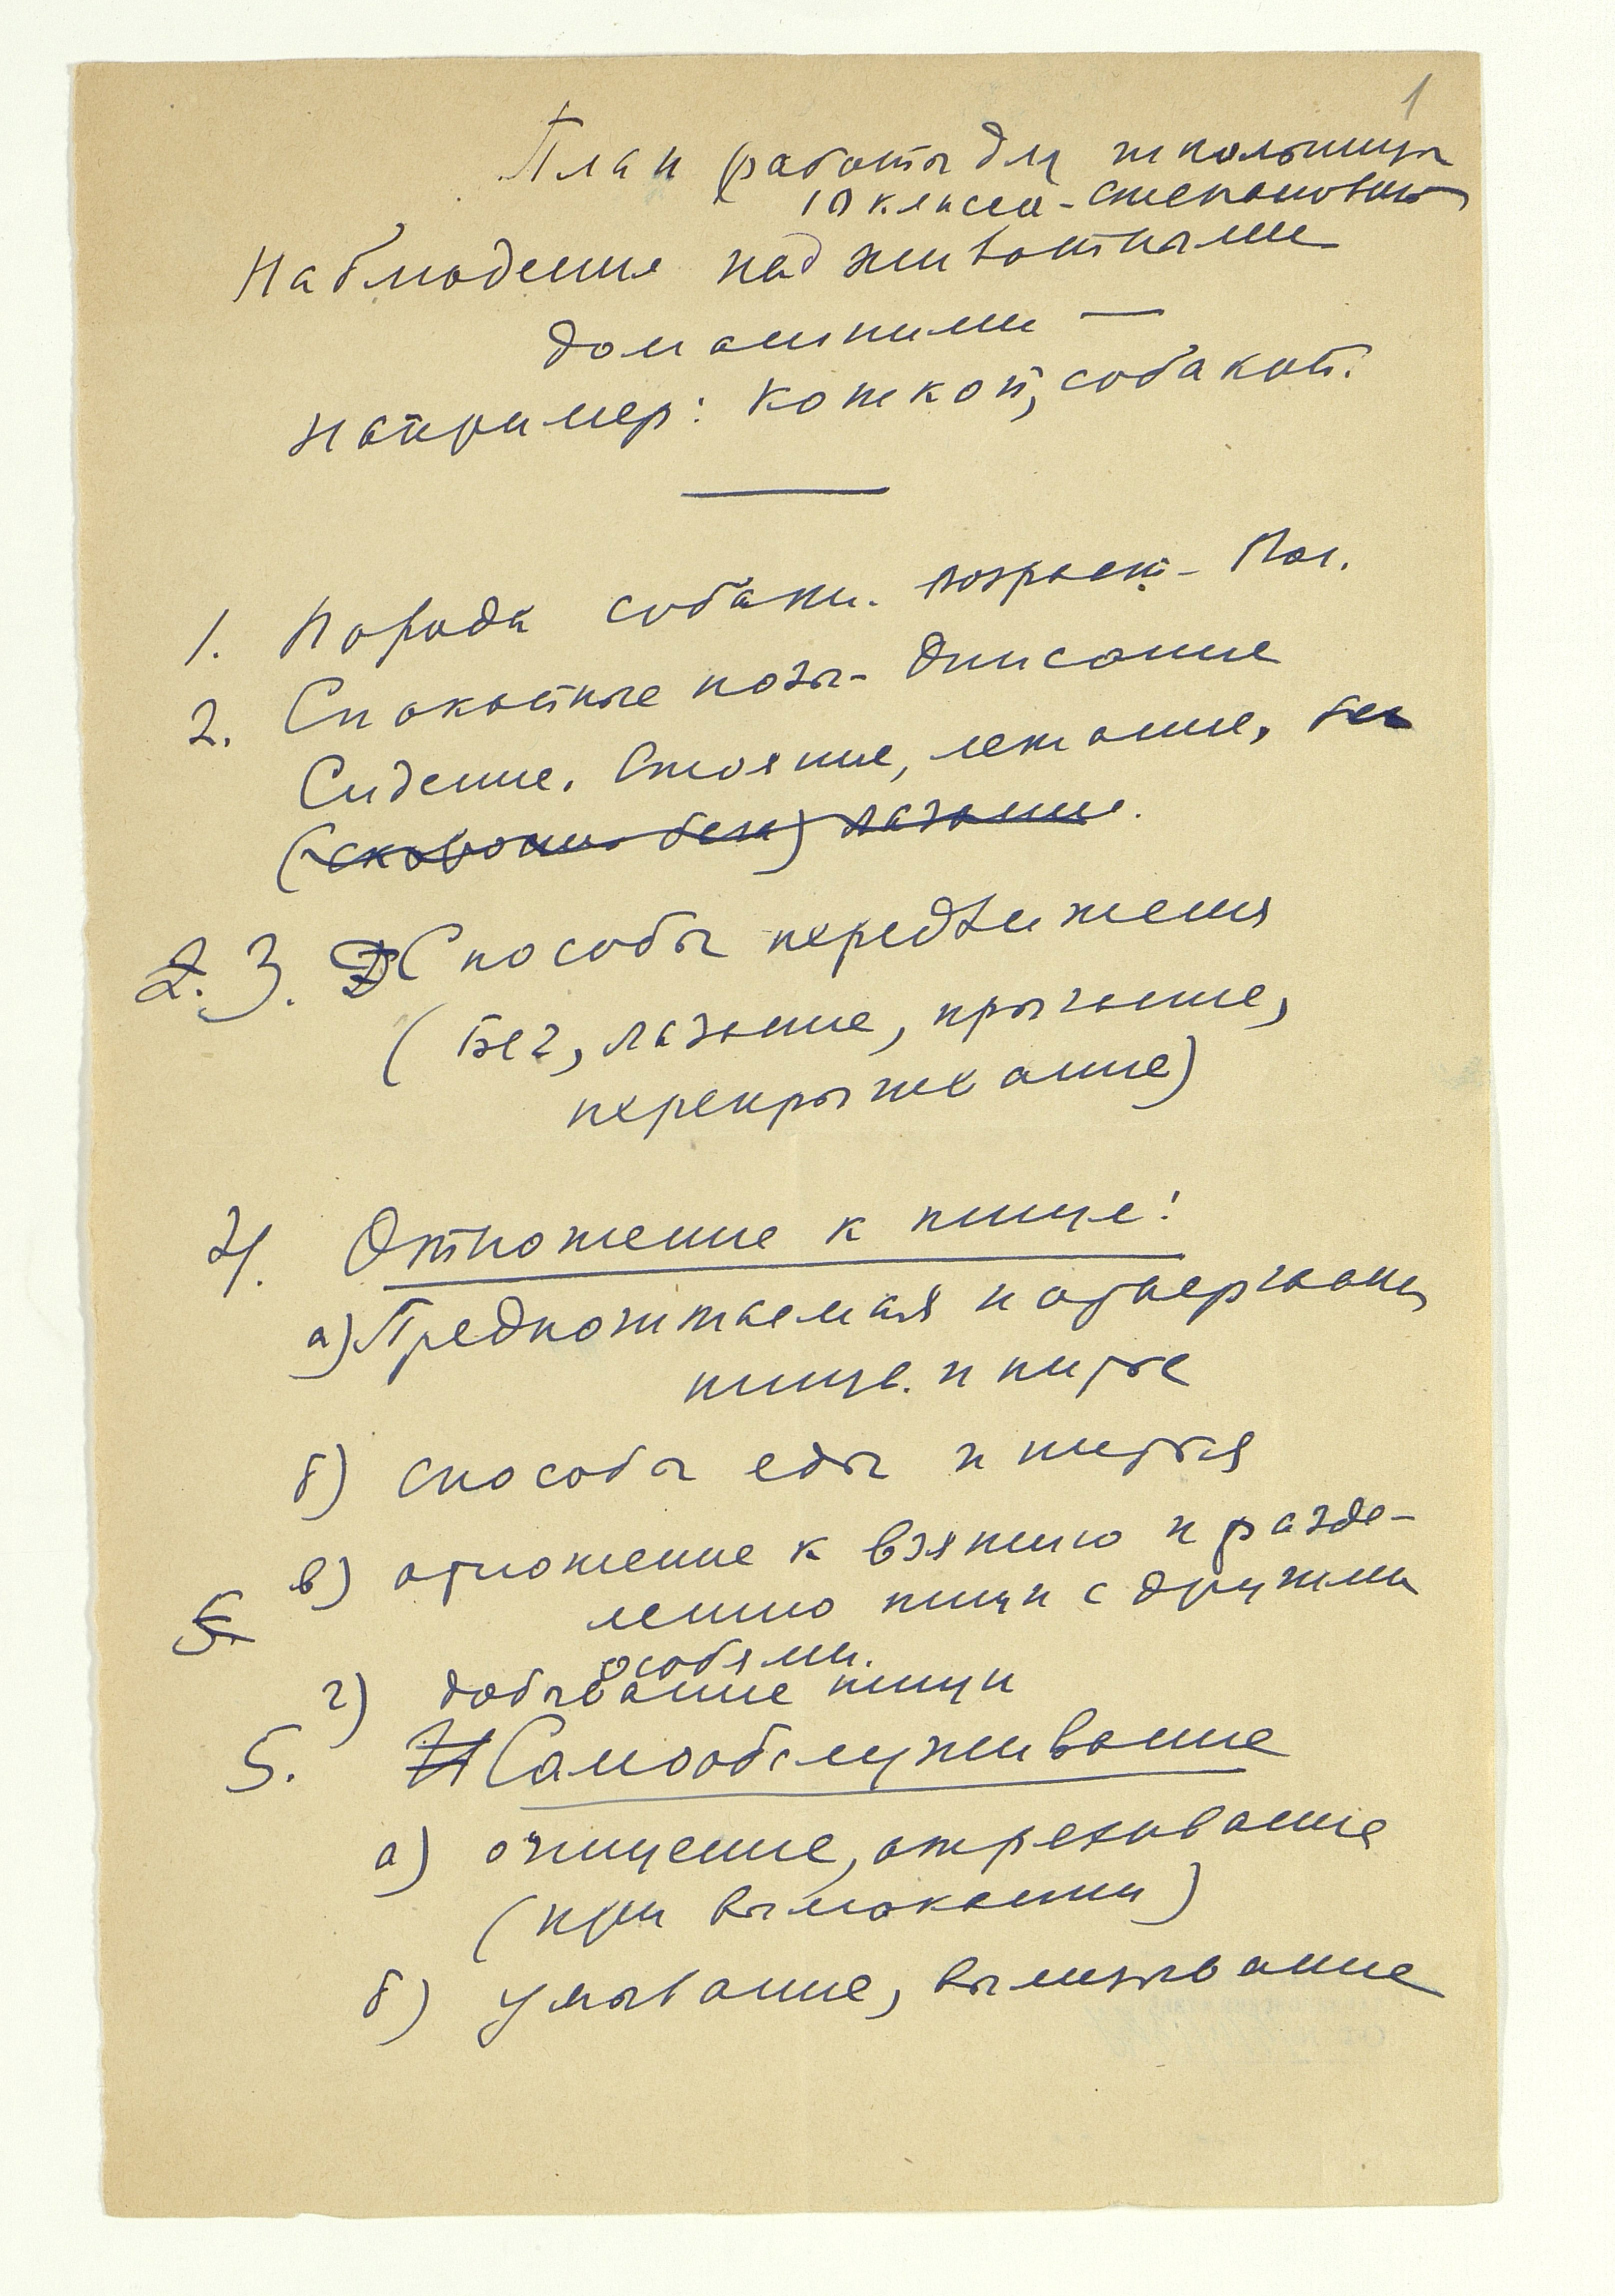 1
План работы для школьницы
10 класса - Степановны
Наблюдение над животными
домашними —
например: кошкой, собакой.
1. Порода собаки. Возраст - Пол.
2. Спокойные позы - Описание
Сидение. Стояние, лежание, бег
(скорость бега) лазание.
2. 3. Способы передвижения
(Бег, лазание, прыгание,
перепрыживание)
4. Отношение к пище:
а) Предпочитаемая и отвергаемая
пища и питье
б) Способы еды и питья
в) отношение к взятию и разде-
5. лению пищи с другими
особями.
г) добывание пищи
5. И Самообслуживание
а) очищение, отрехивание
(при вымокании)
б) умывание, вылизывание